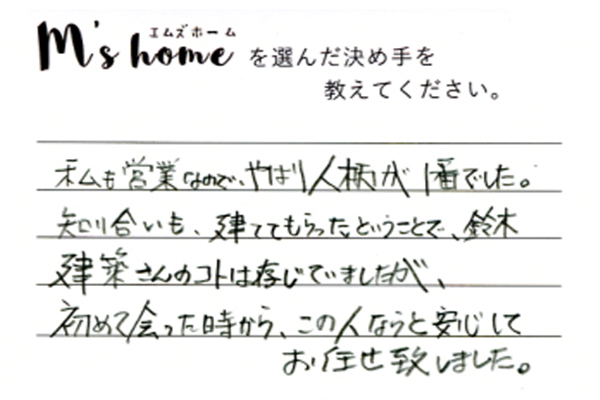 エムズホーム
M's home を選んだ決め手を
教えてください。
私も営業なので、やはり人柄が1番でした。
知り合いも、建ててもらったということで、鈴木
建築さんのコトは存じていましたが、
初めて会った時から、この人ならと安心して
お任せ致しました。